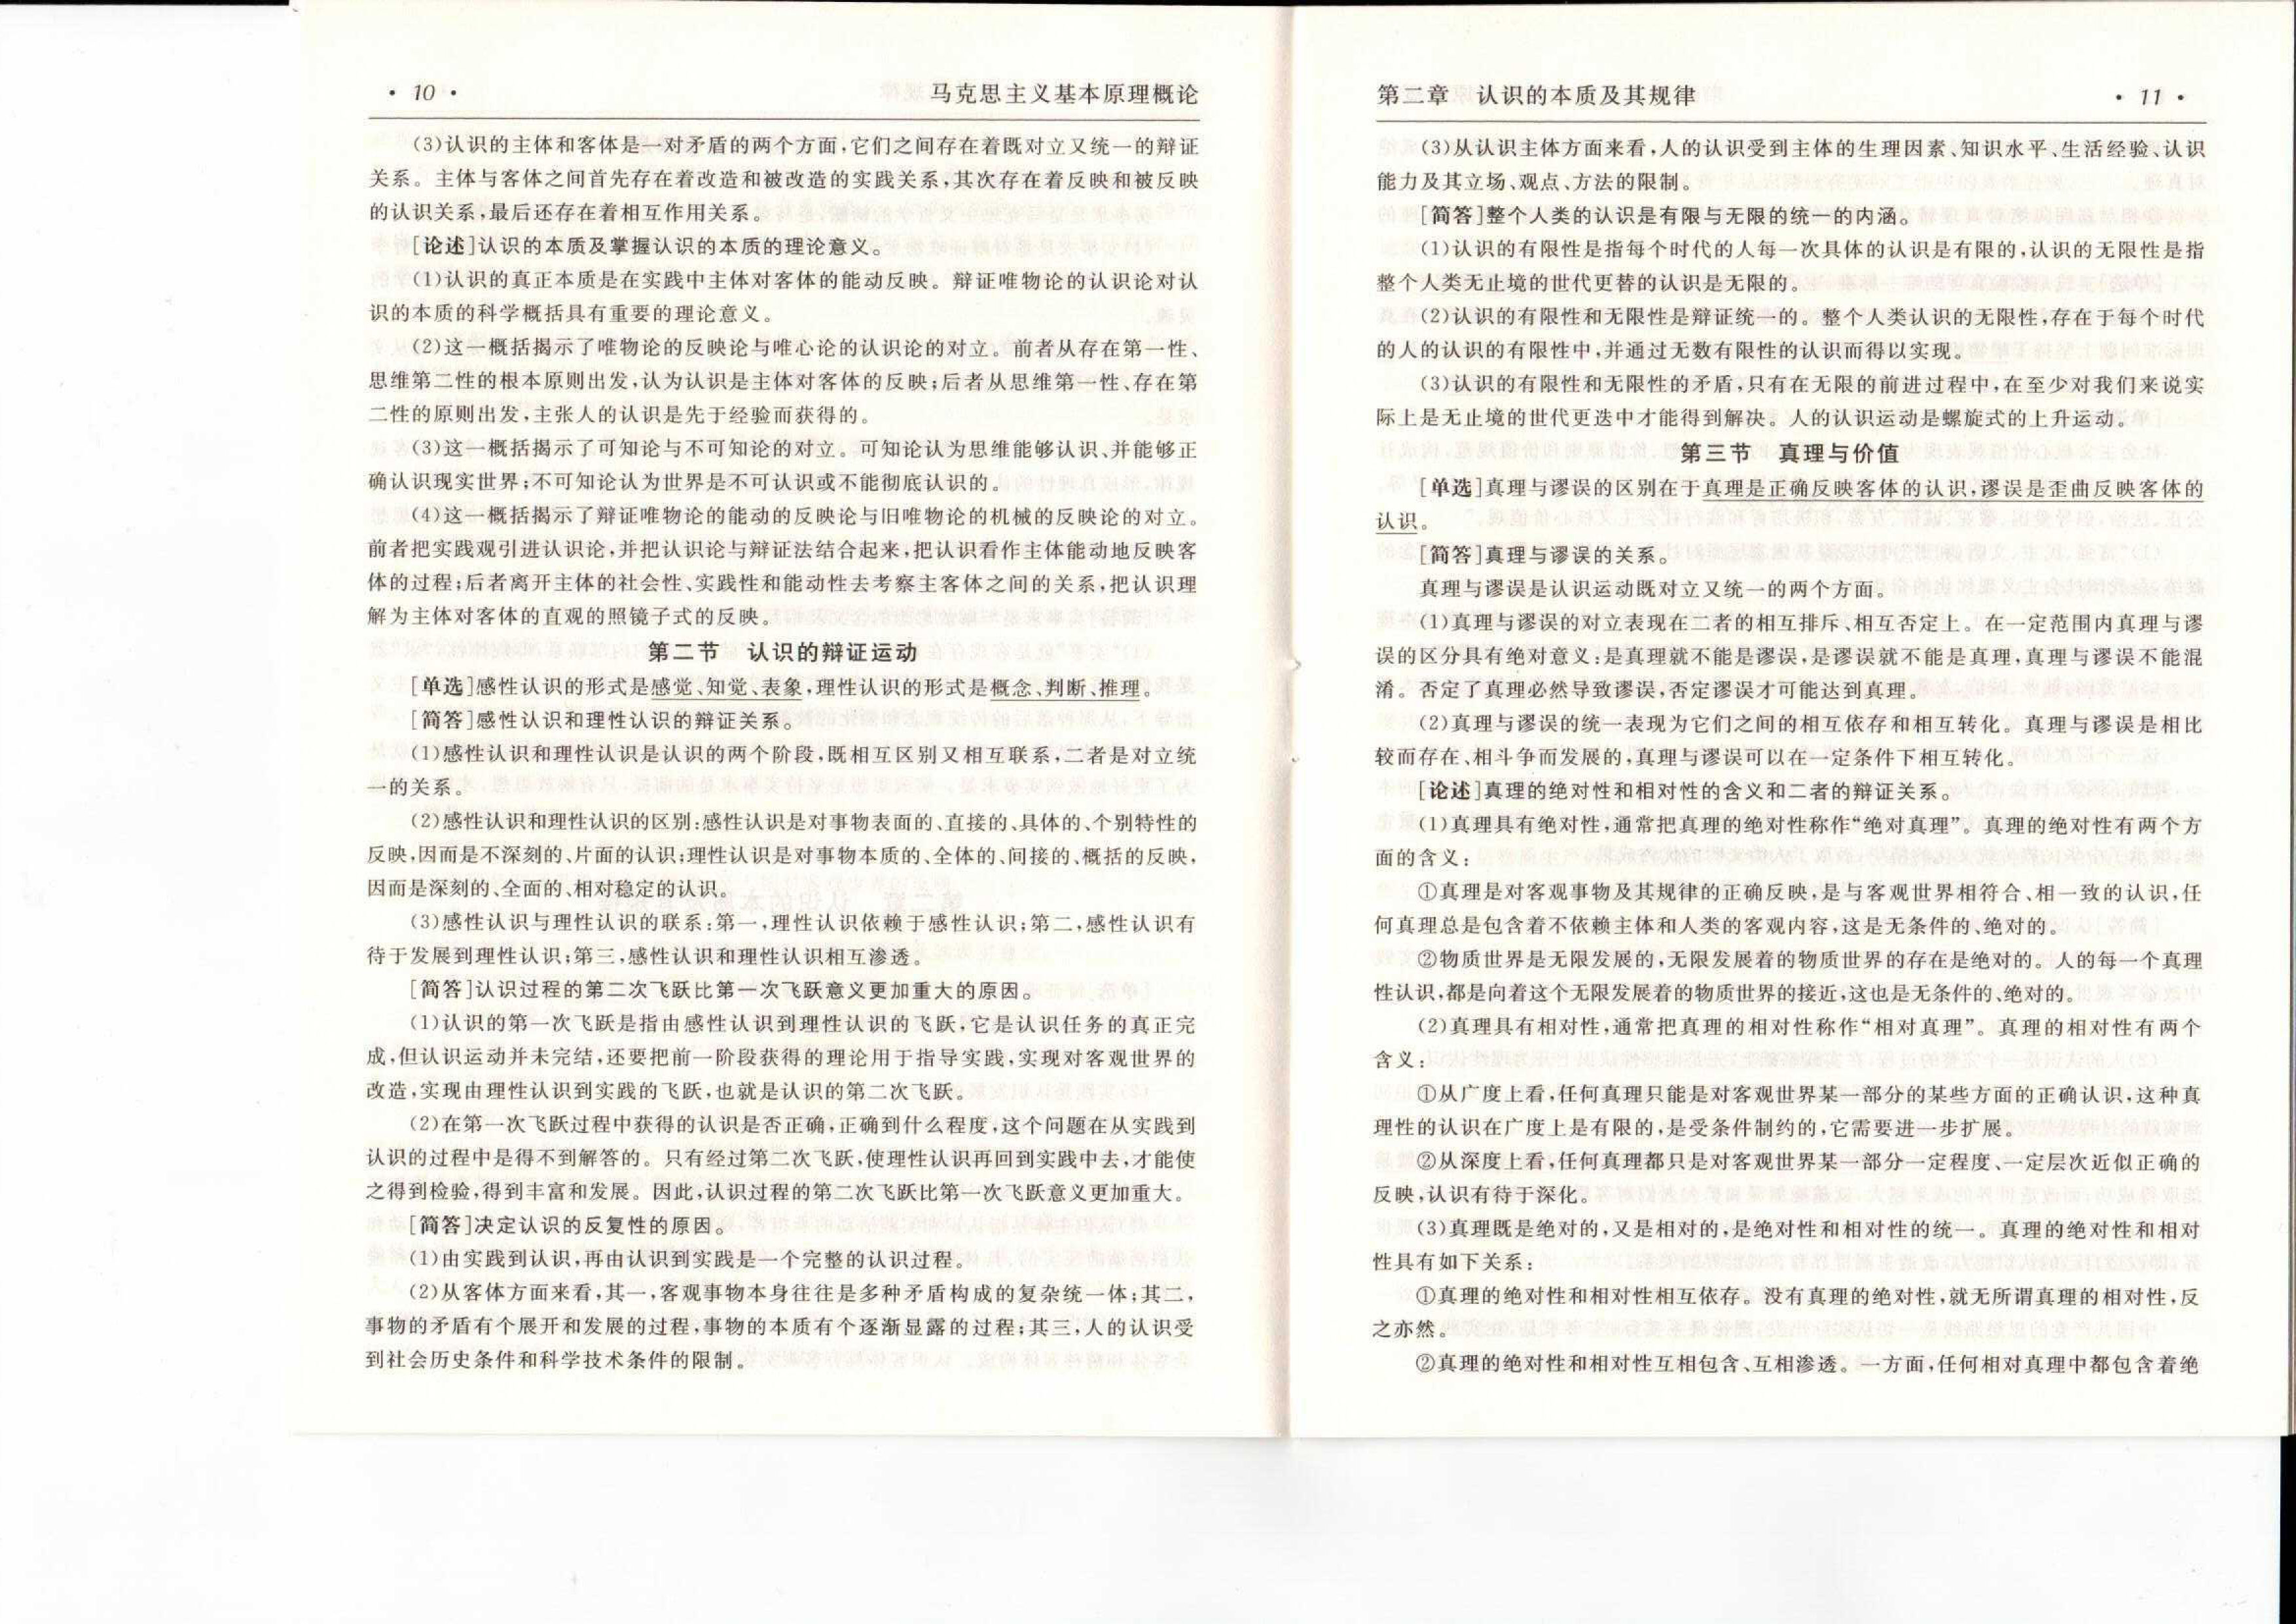 · 10 ·
马克思主义基本原理概论
(3)认识的主体和客体是一对矛盾的两个方面,它们之间存在着既对立又统一的辩证
关系。主体与客体之间首先存在着改造和被改造的实践关系,其次存在着反映和被反映
的认识关系,最后还存在着相互作用关系。
[论述]认识的本质及掌握认识的本质的理论意义。
(1)认识的真正本质是在实践中主体对客体的能动反映。辩证唯物论的认识论对认
识的本质的科学概括具有重要的理论意义。
(2)这一概括揭示了唯物论的反映论与唯心论的认识论的对立。前者从存在第一性、
思维第二性的根本原则出发,认为认识是主体对客体的反映;后者从思维第一性、存在第
二性的原则出发,主张人的认识是先于经验而获得的。
(3)这一概括揭示了可知论与不可知论的对立。可知论认为思维能够认识、并能够正
确认识现实世界;不可知论认为世界是不可认识或不能彻底认识的。
(4)这一概括揭示了辩证唯物论的能动的反映论与旧唯物论的机械的反映论的对立。
前者把实践观引进认识论,并把认识论与辩证法结合起来,把认识看作主体能动地反映客
体的过程;后者离开主体的社会性、实践性和能动性去考察主客体之间的关系,把认识理
解为主体对客体的直观的照镜子式的反映。
第二节 认识的辩证运动
[单选]感性认识的形式是感觉、知觉、表象,理性认识的形式是概念、判断、推理。
[简答]感性认识和理性认识的辩证关系。
(1)感性认识和理性认识是认识的两个阶段,既相互区别又相互联系,二者是对立统
一的关系。
(2)感性认识和理性认识的区别:感性认识是对事物表面的、直接的、具体的、个别特性的
反映,因而是不深刻的、片面的认识;理性认识是对事物本质的、全体的、间接的、概括的反映,
因而是深刻的、全面的、相对稳定的认识。
(3)感性认识与理性认识的联系:第一,理性认识依赖于感性认识;第二,感性认识有
待于发展到理性认识;第三,感性认识和理性认识相互渗透。
[简答]认识过程的第二次飞跃比第一次飞跃意义更加重大的原因。
(1)认识的第一次飞跃是指由感性认识到理性认识的飞跃,它是认识任务的真正完
成,但认识运动并未完结,还要把前一阶段获得的理论用于指导实践,实现对客观世界的
改造,实现由理性认识到实践的飞跃,也就是认识的第二次飞跃。
(2)在第一次飞跃过程中获得的认识是否正确,正确到什么程度,这个问题在从实践到
认识的过程中是得不到解答的。只有经过第二次飞跃,使理性认识再回到实践中去,才能使
之得到检验,得到丰富和发展。因此,认识过程的第二次飞跃比第一次飞跃意义更加重大。
[简答]决定认识的反复性的原因。
(1)由实践到认识,再由认识到实践是一个完整的认识过程。
(2)从客体方面来看,其一,客观事物本身往往是多种矛盾构成的复杂统一体;其二,
事物的矛盾有个展开和发展的过程,事物的本质有个逐渐显露的过程;其三,人的认识受
到社会历史条件和科学技术条件的限制。
第二章 认识的本质及其规律
· 11 ·
(3)从认识主体方面来看,人的认识受到主体的生理因素、知识水平、生活经验、认识
能力及其立场、观点、方法的限制。
[简答]整个人类的认识是有限与无限的统一的内涵。
(1)认识的有限性是指每个时代的人每一次具体的认识是有限的,认识的无限性是指
整个人类无止境的世代更替的认识是无限的。
(2)认识的有限性和无限性是辩证统一的。整个人类认识的无限性,存在于每个时代
的人的认识的有限性中,并通过无数有限性的认识而得以实现。
(3)认识的有限性和无限性的矛盾,只有在无限的前进过程中,在至少对我们来说实
际上是无止境的世代更迭中才能得到解决。人的认识运动是螺旋式的上升运动。
第三节 真理与价值
[单选]真理与谬误的区别在于真理是正确反映客体的认识,谬误是歪曲反映客体的
认识。
[简答]真理与谬误的关系。
真理与谬误是认识运动既对立又统一的两个方面。
(1)真理与谬误的对立表现在二者的相互排斥、相互否定上。在一定范围内真理与谬
误的区分具有绝对意义:是真理就不能是谬误,是谬误就不能是真理,真理与谬误不能混
淆。否定了真理必然导致谬误,否定谬误才可能达到真理。
(2)真理与谬误的统一表现为它们之间的相互依存和相互转化。真理与谬误是相比
较而存在、相斗争而发展的,真理与谬误可以在一定条件下相互转化。
[论述]真理的绝对性和相对性的含义和二者的辩证关系。
(1)真理具有绝对性,通常把真理的绝对性称作“绝对真理”。真理的绝对性有两个方
面的含义:
①真理是对客观事物及其规律的正确反映,是与客观世界相符合、相一致的认识,任
何真理总是包含着不依赖主体和人类的客观内容,这是无条件的、绝对的。
②物质世界是无限发展的,无限发展着的物质世界的存在是绝对的。人的每一个真理
性认识,都是向着这个无限发展着的物质世界的接近,这也是无条件的、绝对的。
(2)真理具有相对性,通常把真理的相对性称作“相对真理”。真理的相对性有两个
含义:
①从广度上看,任何真理只能是对客观世界某一部分的某些方面的正确认识,这种真
理性的认识在广度上是有限的,是受条件制约的,它需要进一步扩展。
②从深度上看,任何真理都只是对客观世界某一部分一定程度、一定层次近似正确的
反映,认识有待于深化。
(3)真理既是绝对的,又是相对的,是绝对性和相对性的统一。真理的绝对性和相对
性具有如下关系:
①真理的绝对性和相对性相互依存。没有真理的绝对性,就无所谓真理的相对性,反
之亦然。
②真理的绝对性和相对性互相包含、互相渗透。一方面,任何相对真理中都包含着绝